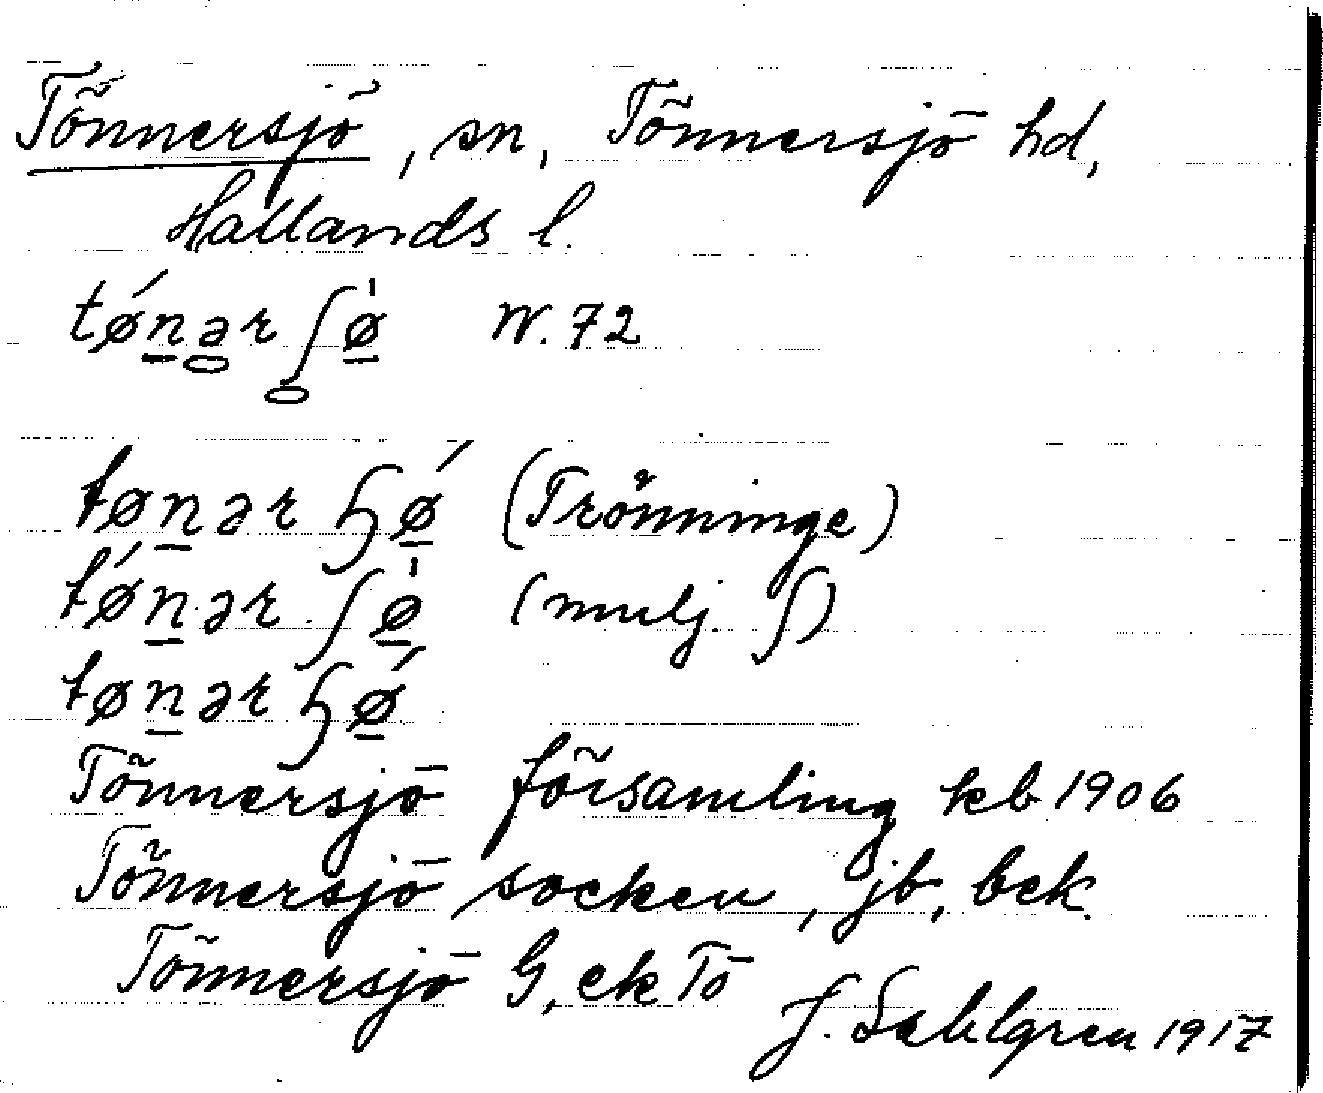 Tönnersjö, sn, Tönnersjö hd,
Hallands l.
tǿn̲ər ʃø̲̍ W. 72
tøn̲ər ɧǿ̲ (Trönninge)
tǿn̲ər ʃø̲̍ (mulj. ʃ)
tøn̲ər ɧǿ̲
Tönnersjö församling kb 1906
Tönnersjö socken, jb, bek.
Tönnersjö G, ek Tö
J. Sahlgren 1917